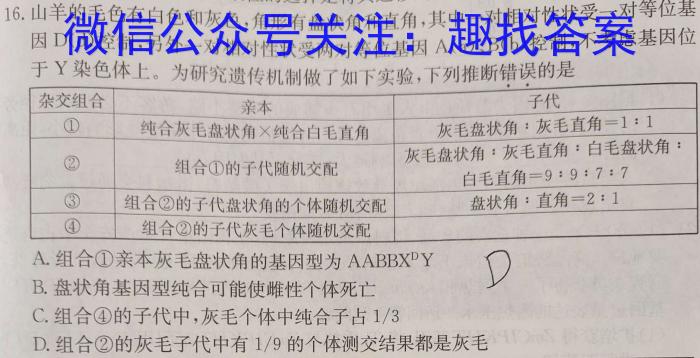 16.山羊的毛色有白色和灰色,角形有盘状角和直角,其中一对相对性状受一对等位基
因D、
微信公众号关注：趣找答案
于Y染色体上。为研究遗传机制做了如下实验,下列推断错误的是
杂交组合 亲本 子代
① 纯合灰毛盘状角×纯合白毛直角 灰毛盘状角:灰毛直角=1:1
② 组合①的子代随机交配 灰毛盘状角:灰毛直角:白毛盘状角:
白毛直角=9:9:7:7
③ 组合②的子代盘状角的个体随机交配 盘状角:直角=2:1
④ 组合②的子代灰毛个体随机交配
A.组合①亲本灰毛盘状角的基因型为AABBXᴰY
B.盘状角基因型纯合可能使雌性个体死亡
C.组合④的子代中,灰毛个体中纯合子占1/3
D.组合②的灰毛子代中有1/9的个体测交结果都是灰毛
D